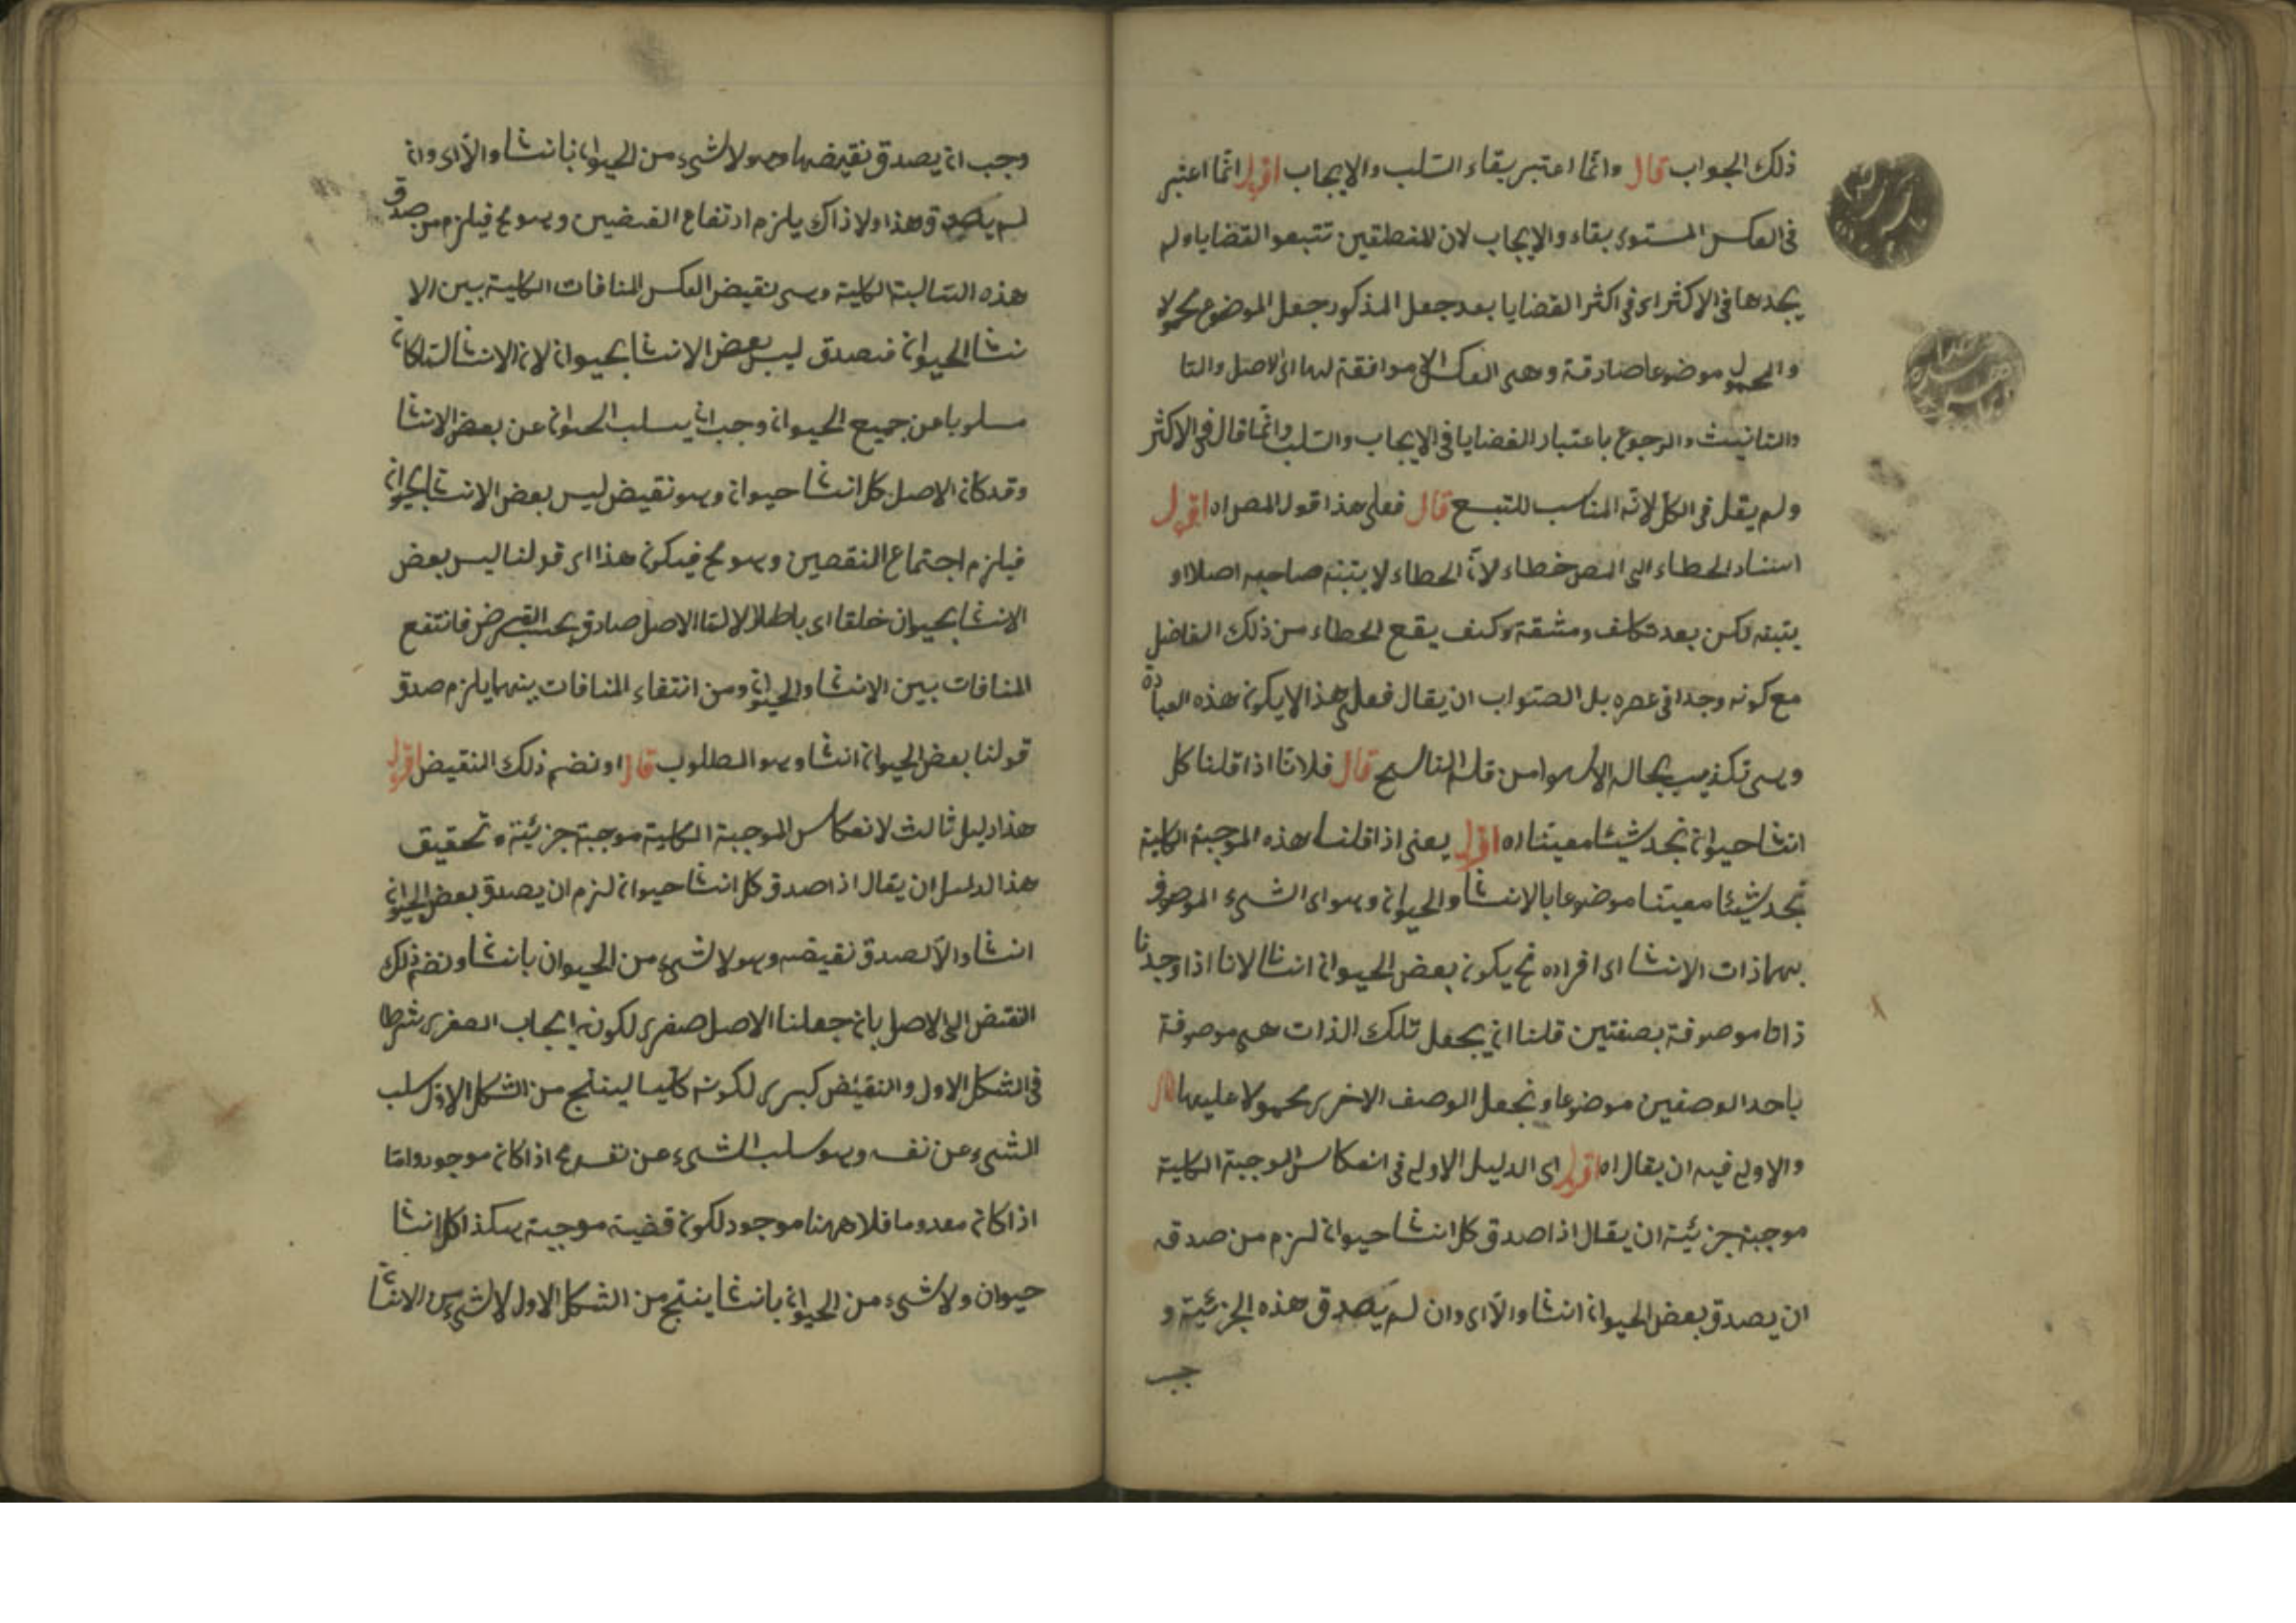 ذلك الجواب قال وانما اعتبر بقاء السلب والايجاب اقول انما اعتبر
فى العكس المستوى بقاء والايجاب لان المنطقين تتبعوا القضايا ولم
يجدها فى الاكثر اى فى اكثر القضايا بعد جعل المذكور جعل الموضوع محمولا
والمحمول موضوعا صادقة وهى العكس الا موافقة لها اى لاصل والتا
والتانيث والرجوع باعتبار القضايا فى الايجاب والسلب وانما قال فى الاكثر
ولم يقل فى الكل لانه المناسب للتبع قال فعلى هذا قول المص اه اقول
اسناد الخطاء الى المص خطاء لان الخطاء لا يتبنه صاحبه اصلا او
يتبنه لكن بعد تكلف ومشقة وكيف يقع الخطاء من ذلك الفاضل
مع كونه وحدا فى عصره بل الصواب ان يقال فعلى هذا لا يكون هذه العبارة
وهى تكذيب بحاله الا سهوا من قلم الناسح قال فلانا اذا قلنا كل
انسا حيوان نجد شيئا معينا اه اقول يعنى اذا قلنا هذه الموجبة الكلية
نجد شيئا معينا موضوعا بالانسا والحيوان وهو اى الشىء الموصوف
بهما ذات الانسا اى افراده نح يكون بعض الحيوان انسانا لانا اذا وجدنا
ذاتا موصوفة بصفتين قلنا ان يجعل تلك الذات هى موصوفة
باحد الوصفين موضوعا ونجعل الوصف الاخرى محمولا عليها قال
والاولى فيه ان يقال اه اقول اى الدليل الاولى فى انعكاس الموجبة الكلية
موجبة جزئية ان يقال اذا صدق كل انسا حيوان لزم من صدقه
ان يصدق بعض الحيوان انسا والا اى وان لم يصدق هذه الجزئية و
جب
وجب ان يصدق نقيضها وهو لا شىء من الحيوان بانسا والا اى وان
لم يصدق هذا ولا ذاك يلزم ارتفاع القضيين وهو مح فيلزم من صدق
هذه السالبة الكلية وهى نقيض العكس المنافات الكلية بين الا
نسا الحيوان فيصدق ليس بعض الانسا بحيوان لان الانسا لما كان
مسلوبا عن جميع الحيوان وجب ان يسلب الحيوان عن بعض الانسا
وقد كان الاصل كل انسا حيوان وهو نقيض ليس بعض الانسا بحيوان
فيلزم اجتماع النقصين وهو مح فيكون هذا اى قولنا ليس بعض
الانسا بحيوان خلقا اى باطلا لا لتا الاصل صادق بحسب الفرض فانتفع
المنافات بين الانسا والحيوان ومن انتفاء المنافات بينهما يلزم صدق
قولنا بعض الحيوان انسا وهو المطلوب قال او نضم ذلك النقيض اقول
هذا دليل ثالث لانعكاس الموجبة الكلية موجبة جزئية وتحقيق
هذا الدليل ان يقال اذا صدق كل انسا حيوان لزم ان يصدق بعض الحيوان
انسا والا لصدق نقيضه وهو لا شىء من الحيوان بانسا ونضم ذلك
النقيض الى الاصل بان جعلنا الاصل صغرى لكونه ايجاب الصغرى شرطا
فى الشكل الاول والنقيض كبرى لكونه كليا لينتج من الشكل الاول سلب
الشىء عن نفسه وهو سلب الشىء عن نفسه مح اذا كان موجود واما
اذا كان معدوما فلا ههنا موجود لكون قضية موجبة هكذا كل انسا
حيوان ولا شىء من الحيوان بانسا ينتج من الشكل الاول لا شىء من الانسا